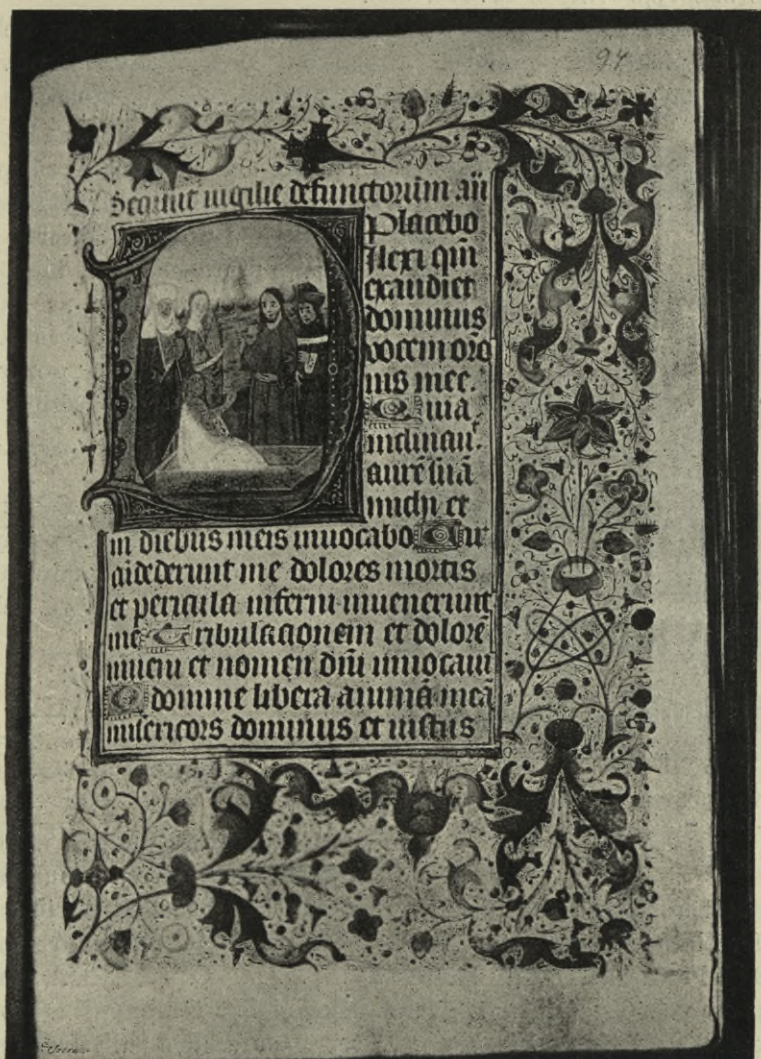 94
Secūnt vigilie defunctorum añ
Placebo
ilexi qm̄
exaudiet
dominus
vocem orō
nis mee.
Quia
inclinauit
aurē suā
michi et
in diebus meis inuocabo Cir
cūdederunt me dolores mortis
et pericula inferni inuenerunt
me Tribulacionem et dolorē
inueni et nomen dn̄i inuocaui
O domine libera animā meā
misericors dominus et iustus